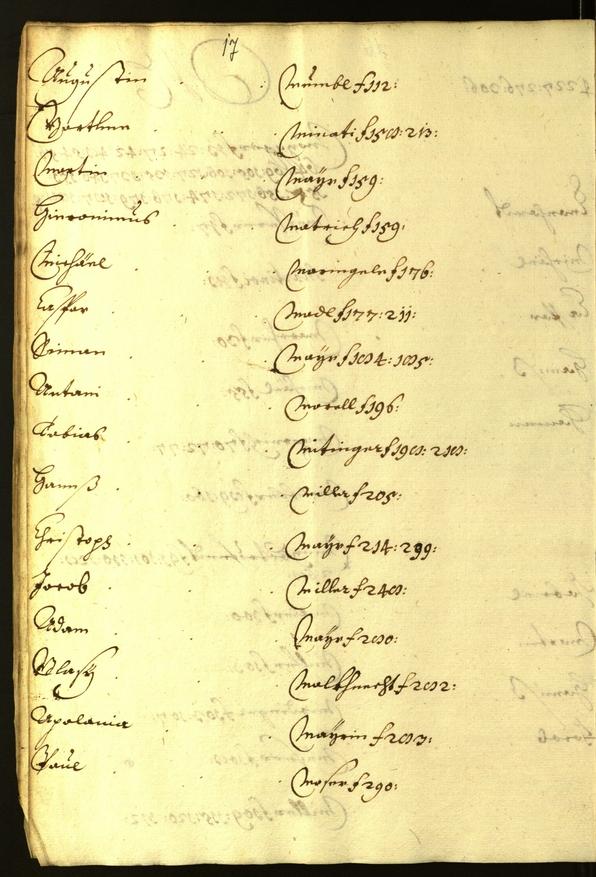 17
Augusten Mümbl f 112:
Barthlme Minati f 158: 213:
Martin Mayr f 159:
Hieronimus Matrich f 159:
Michäel Maringele f 176:
Casper Madl f 177: 211:
Siman Mayr f 184: 185:
Antani Morell f 196:
Tobias Mitinger f 198: 218:
Hannß Miller f 205:
Christoph Mayr f 214: 299:
Jacob Miller f 248:
Adam Mayr f 280:
Blasy Malkhnecht f 282:
Apolania Mayrin f 283:
Paul Moser f 290: